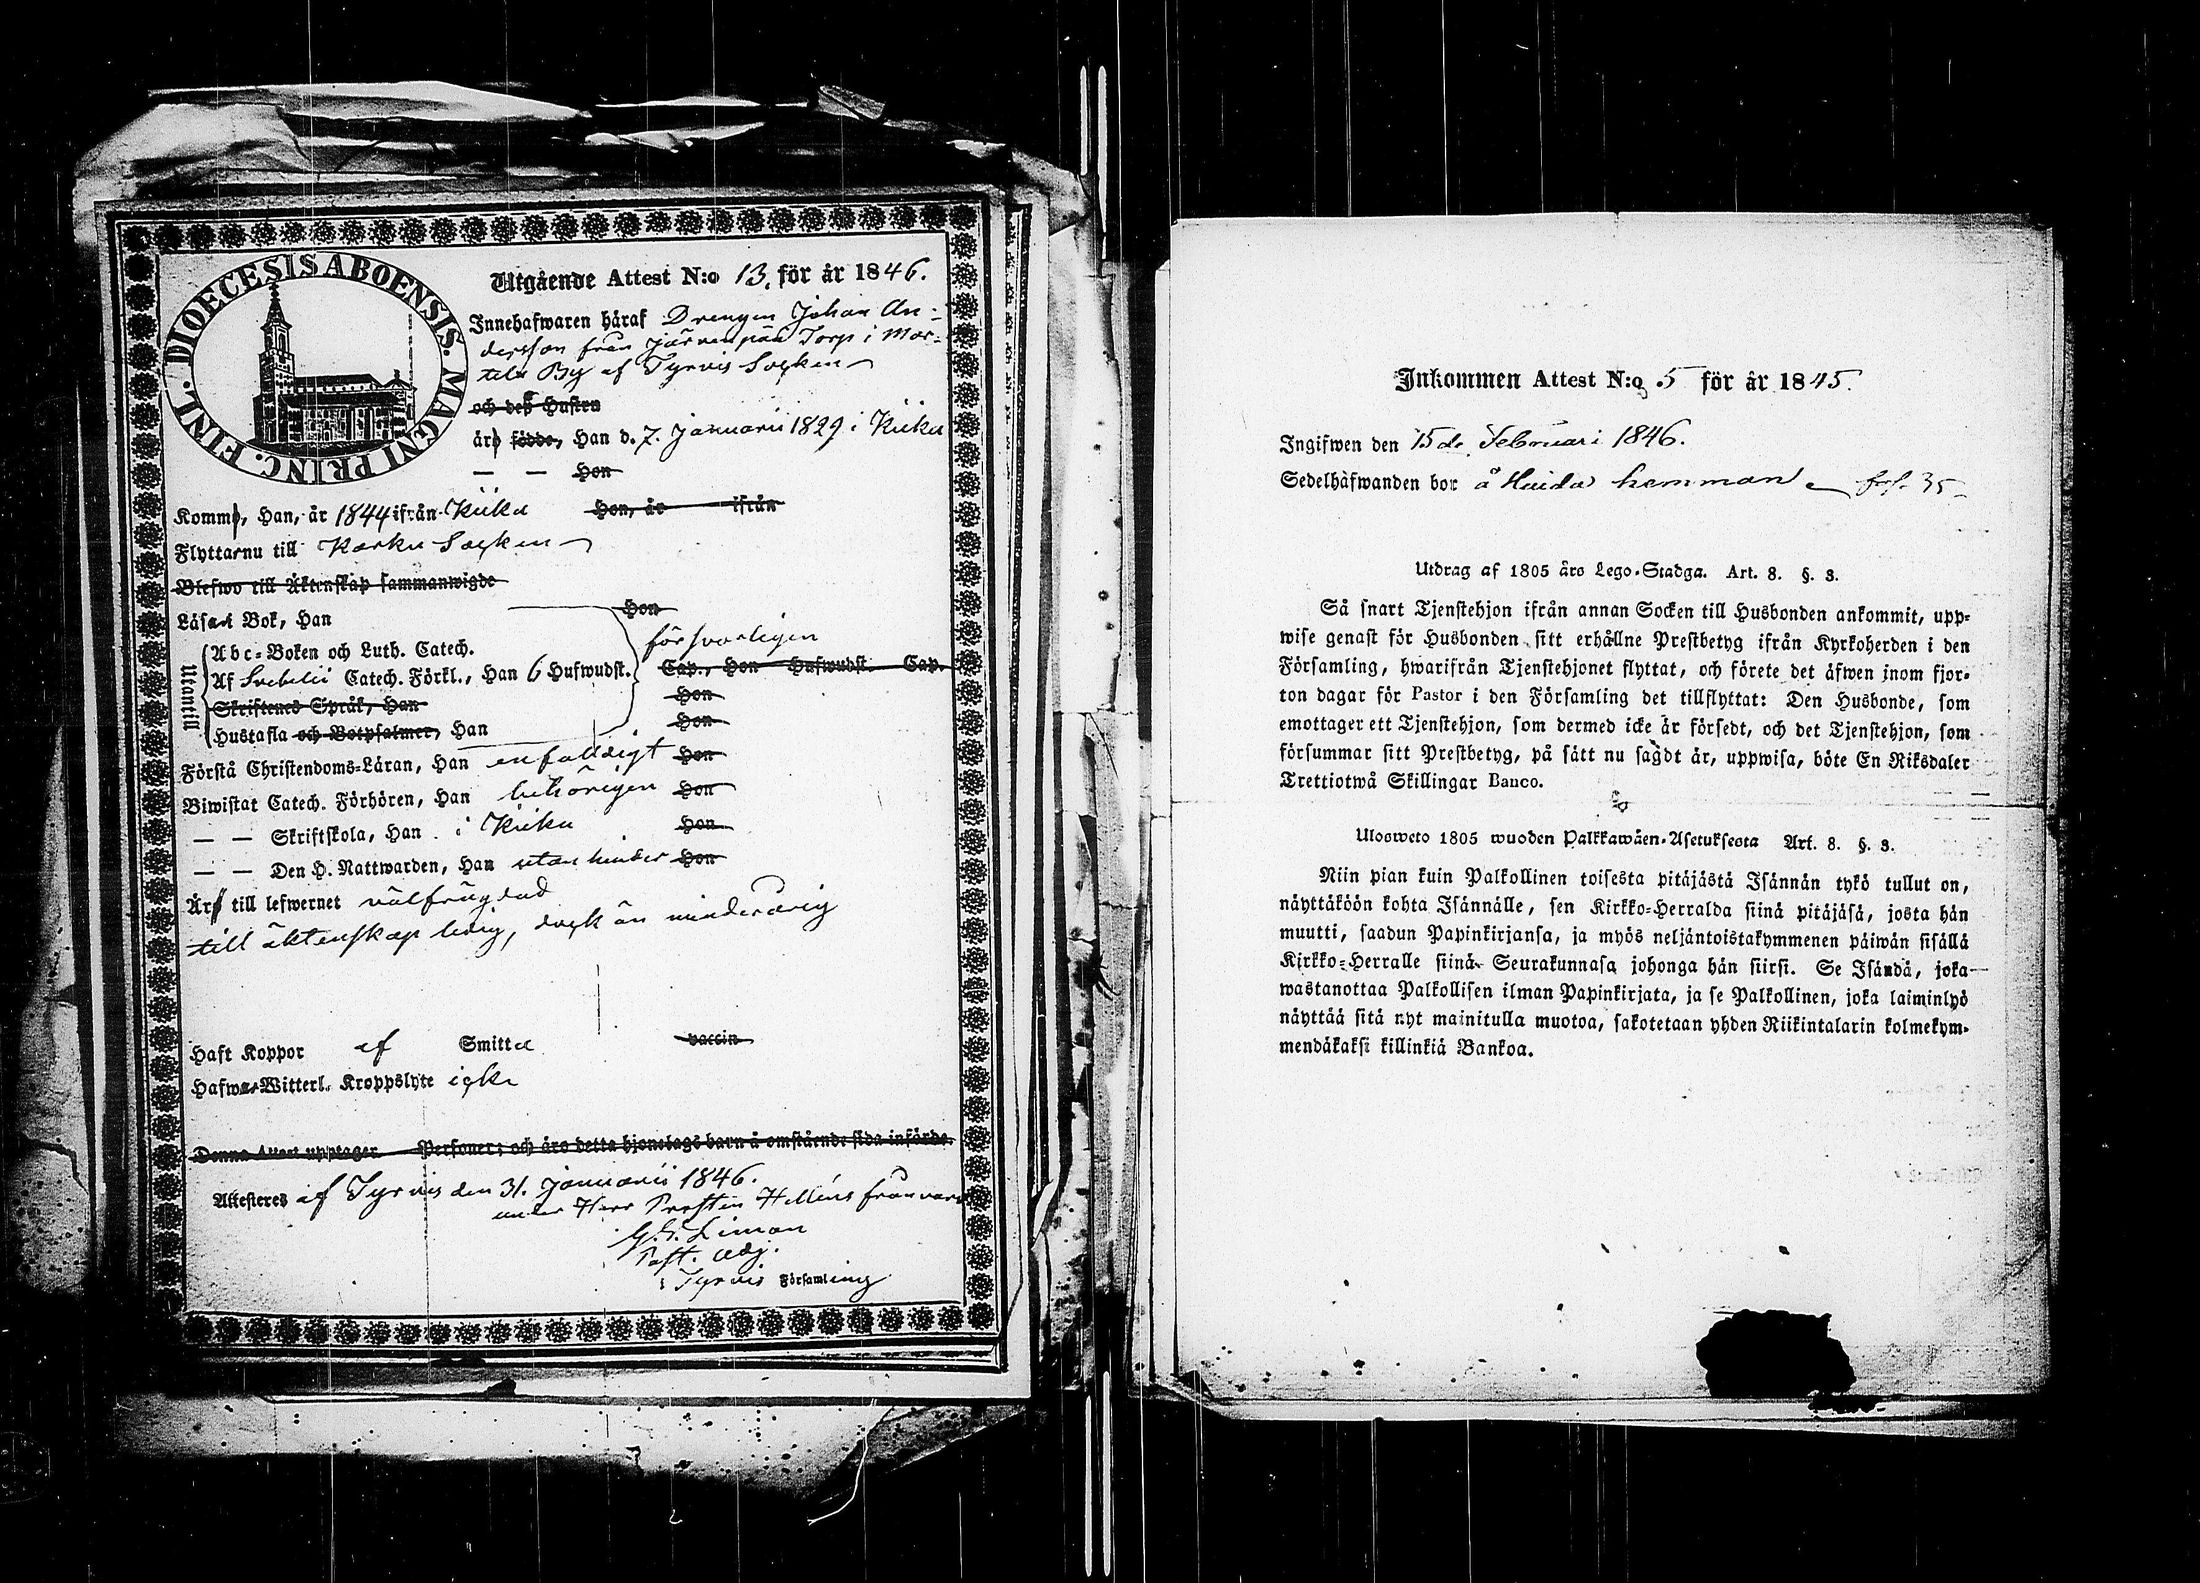 DIOECESIS ABOENSIS. MAGNI PRINC. FINL.
Utgående Attest N:o 13. för år 1846.
Innehafwaren häraf Drengen Johan An-
dersson från Järvenpää Torp i Mar-
tila By af Tyrvis Socken
och deß Hustru
äro födde, Han d. 7. Januarii 1829 i Kiika
— — Hon
Kommo, Han, år 1844 ifrån Kiika Hon, år ifrån
Flyttar nu till Karku Socken
Blefwo till Äktenskap sammanwigde
Läser i Bok, Han Hon
Utantill
Abc-Boken och Luth. Catech. försvarligen
Af Svebelii Catech. Förkl., Han 6 Hufwudst. Cap., Hon Hufwudst. Cap.
Skriftenes Språk, Han Hon
Hustafla och Botpsalmer, Han Hon
Förstå Christendoms-Läran, Han enfaldigt Hon
Biwistat Catech. Förhören, Han behörigen Hon
— — Skriftskola, Han i Kiika Hon
— — Den H. Nattwarden, Han utan hinder Hon
Äro till lefwernet välfrägdad
till äktenskap ledig, dock än minderårig
Haft Koppor af Smitta vaccin
Hafwa Witterl. Kroppslyte icke
Denna Attest upptager Personer; och äro detta hjonelags barn å omstående sida införde.
Attesteres af Tyrvis den 31. Januarii 1846.
under Herr Prosten Helléns frånvaro
G. Liman
Past. Adj.
i Tyrvis Församling
Inkommen Attest N:o 5 för år 1845.
Ingifwen den 15de Februari 1846.
Sedelhäfwanden bor å Haida hemman fol. 35
Utdrag af 1805 års Lego-Stadga. Art. 8. §. 3.
Så snart Tjenstehjon ifrån annan Socken till Husbonden ankommit, upp-
wise genast för Husbonden sitt erhållne Prestbetyg ifrån Kyrkoherden i den
Församling, hwarifrån Tjenstehjonet flyttat, och förete det äfwen inom fjor-
ton dagar för Pastor i den Församling det tillflyttat: Den Husbonde, som
emottager ett Tjenstehjon, som dermed icke är försedt, och det Tjenstehjon, som
försummar sitt Prestbetyg, på sätt nu sagdt är, uppwisa, böte En Riksdaler
Trettiotwå Skillingar Banco.
Ulosweto 1805 wuoden Palkkawäen-Asetuksesta Art. 8. §. 3.
Niin pian kuin Palkollinen toisesta pitäjästä Isännän tykö tullut on,
näyttäköön kohta Isännälle, sen Kirkko-Herralda siinä pitäjäsä, josta hän
muutti, saadun Papinkirjansa, ja myös neljäntoistakymmenen päiwän sisällä
Kirkko-Herralle siinä Seurakunnasa johonga hän siirsi. Se Isändä, joka
wastanottaa Palkollisen ilman Papinkirjata, ja se Palkollinen, joka laiminlyö
näyttää sitä nyt mainitulla muotoa, sakotetaan yhden Riikintalarin kolmekym-
mendäkaksi killinkiä Bankoa.